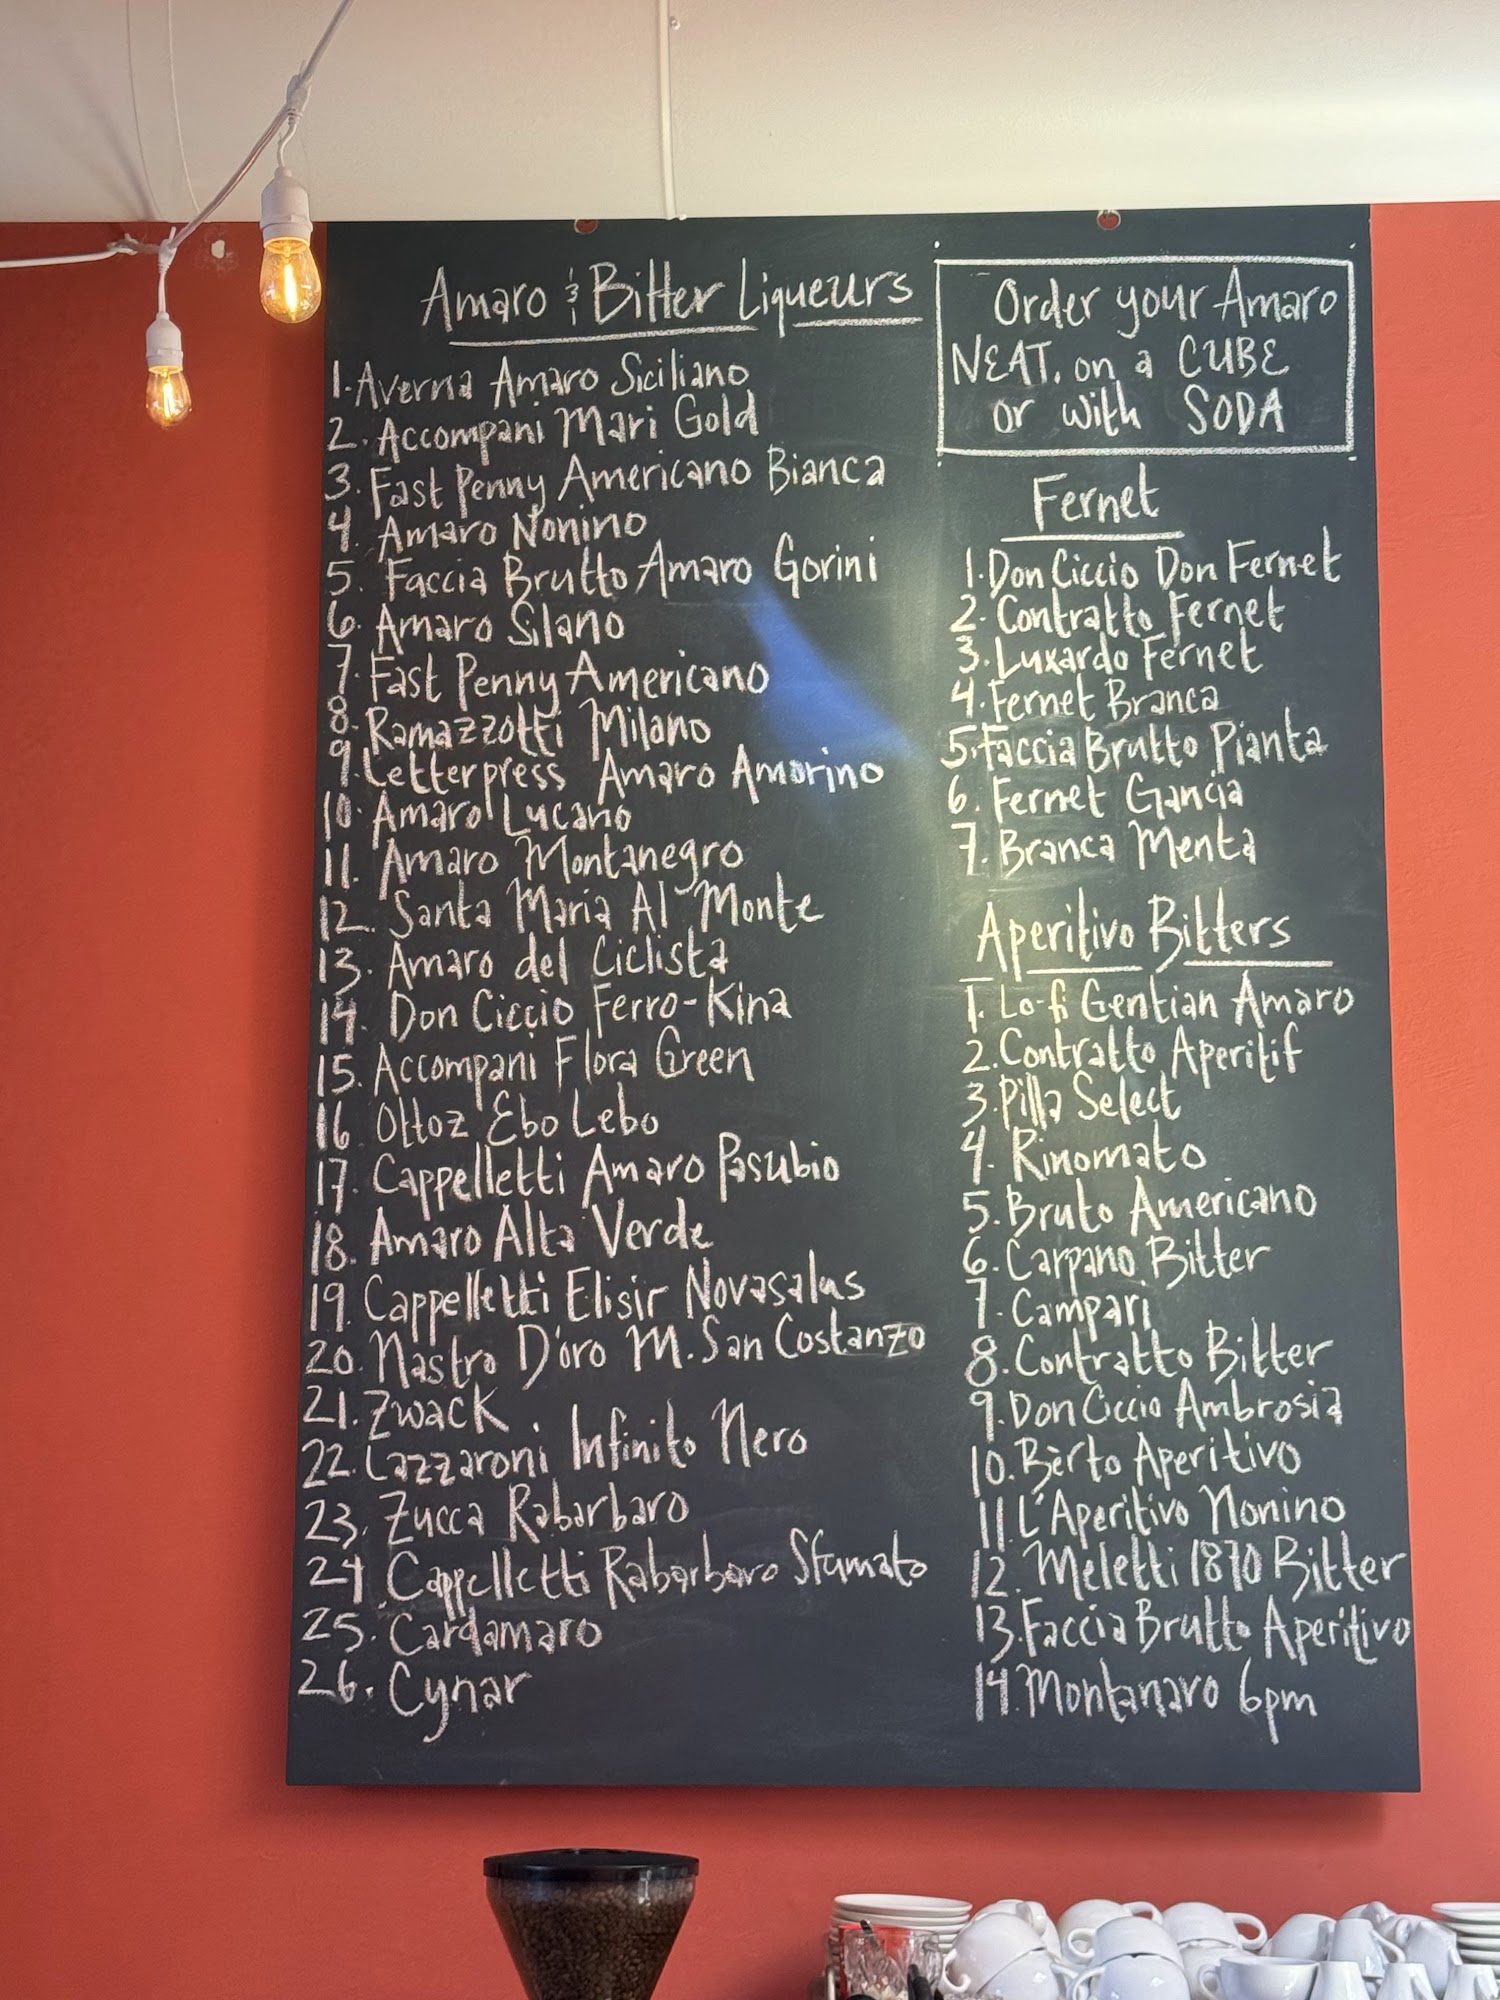 Amaro & Bitter Liqueurs
1. Averna Amaro Siciliano
2. Accompani Mari Gold
3. Fast Penny Americano Bianca
4. Amaro Nonino
5. Faccia Brutto Amaro Gorini
6. Amaro Silano
7. Fast Penny Americano
8. Ramazzotti Milano
9. Letterpress Amaro Amorino
10. Amaro Lucano
11. Amaro Montanegro
12. Santa Maria Al Monte
13. Amaro del Ciclista
14. Don Ciccio Ferro-Kina
15. Accompani Flora Green
16 Ottoz Ebo Lebo
17. Cappelletti Amaro Pasubio
18. Amaro Alta Verde
19. Cappelletti Elisir Novasalus
20. Nastro D'oro M. San Costanzo
21. Zwack
22. Lazzaroni Infinito Nero
23. Zucca Rabarbaro
24. Cappelletti Rabarbaro Sfumato
25. Cardamaro
26. Cynar
Order your Amaro
NEAT, on a CUBE
or with SODA
Fernet
1. Don Ciccio Don Fernet
2. Contratto Fernet
3. Luxardo Fernet
4. Fernet Branca
5. Faccia Brutto Pianta
6. Fernet Gancia
7. Branca Menta
Aperitivo Bitters
1. Lo-fi Gentian Amaro
2. Contratto Aperitif
3. Pilla Select
4. Rinomato
5. Bruto Americano
6. Carpano Bitter
7. Campari
8. Contratto Bitter
9. Don Ciccio Ambrosia
10. Bèrto Aperitivo
11 L'Aperitivo Nonino
12. Meletti 1870 Bitter
13. Faccia Brutto Aperitivo
14. Montanaro 6pm